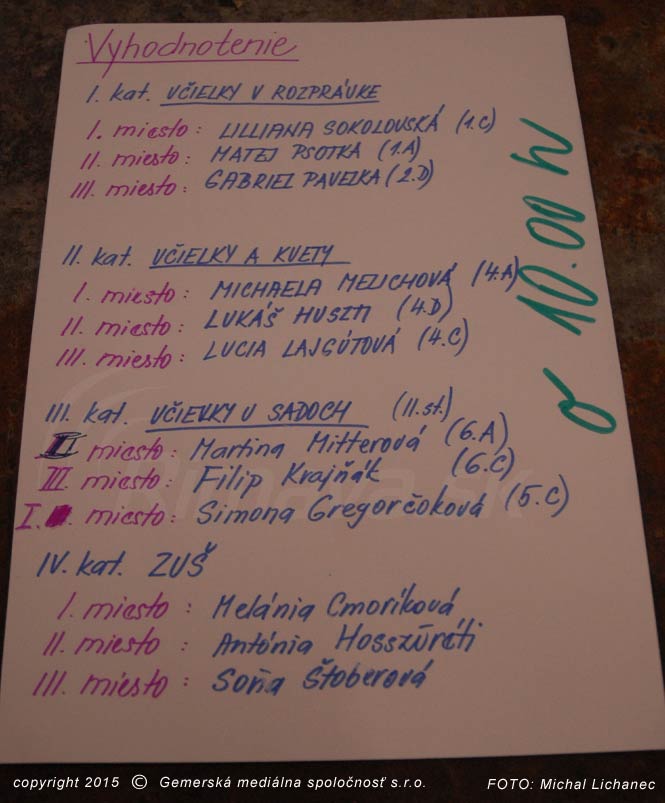 Vyhodnotenie
I. kat. VČIELKY V ROZPRÁVKE
I. miesto: LILLIANA SOKOLOVSKÁ (1.C)
II. miesto: MATEJ PSOTKA (1.A)
III. miesto: GABRIEL PAVELKA (2.D)
II. kat. VČIELKY A KVETY
I. miesto: MICHAELA MELICHOVÁ (4.A)
II. miesto: LUKÁŠ HUSZTI (4.D)
III. miesto: LUCIA LAJGÚTOVÁ (4.C)
III. kat. VČIELKY V SADOCH (II.st.)
II miesto: Martina Mitterová (6.A)
III miesto: Filip Krajňák (6.C)
I. miesto: Simona Gregorčoková (5.C)
IV. kat. ZUŠ
I. miesto: Melánia Cmoríková
II. miesto: Antónia Hosszúréti
III. miesto: Soňa Štoberová
o 10.00 h
Rimava.sk
copyright 2015 © Gemerská mediálna spoločnosť s.r.o.
FOTO: Michal Lichanec